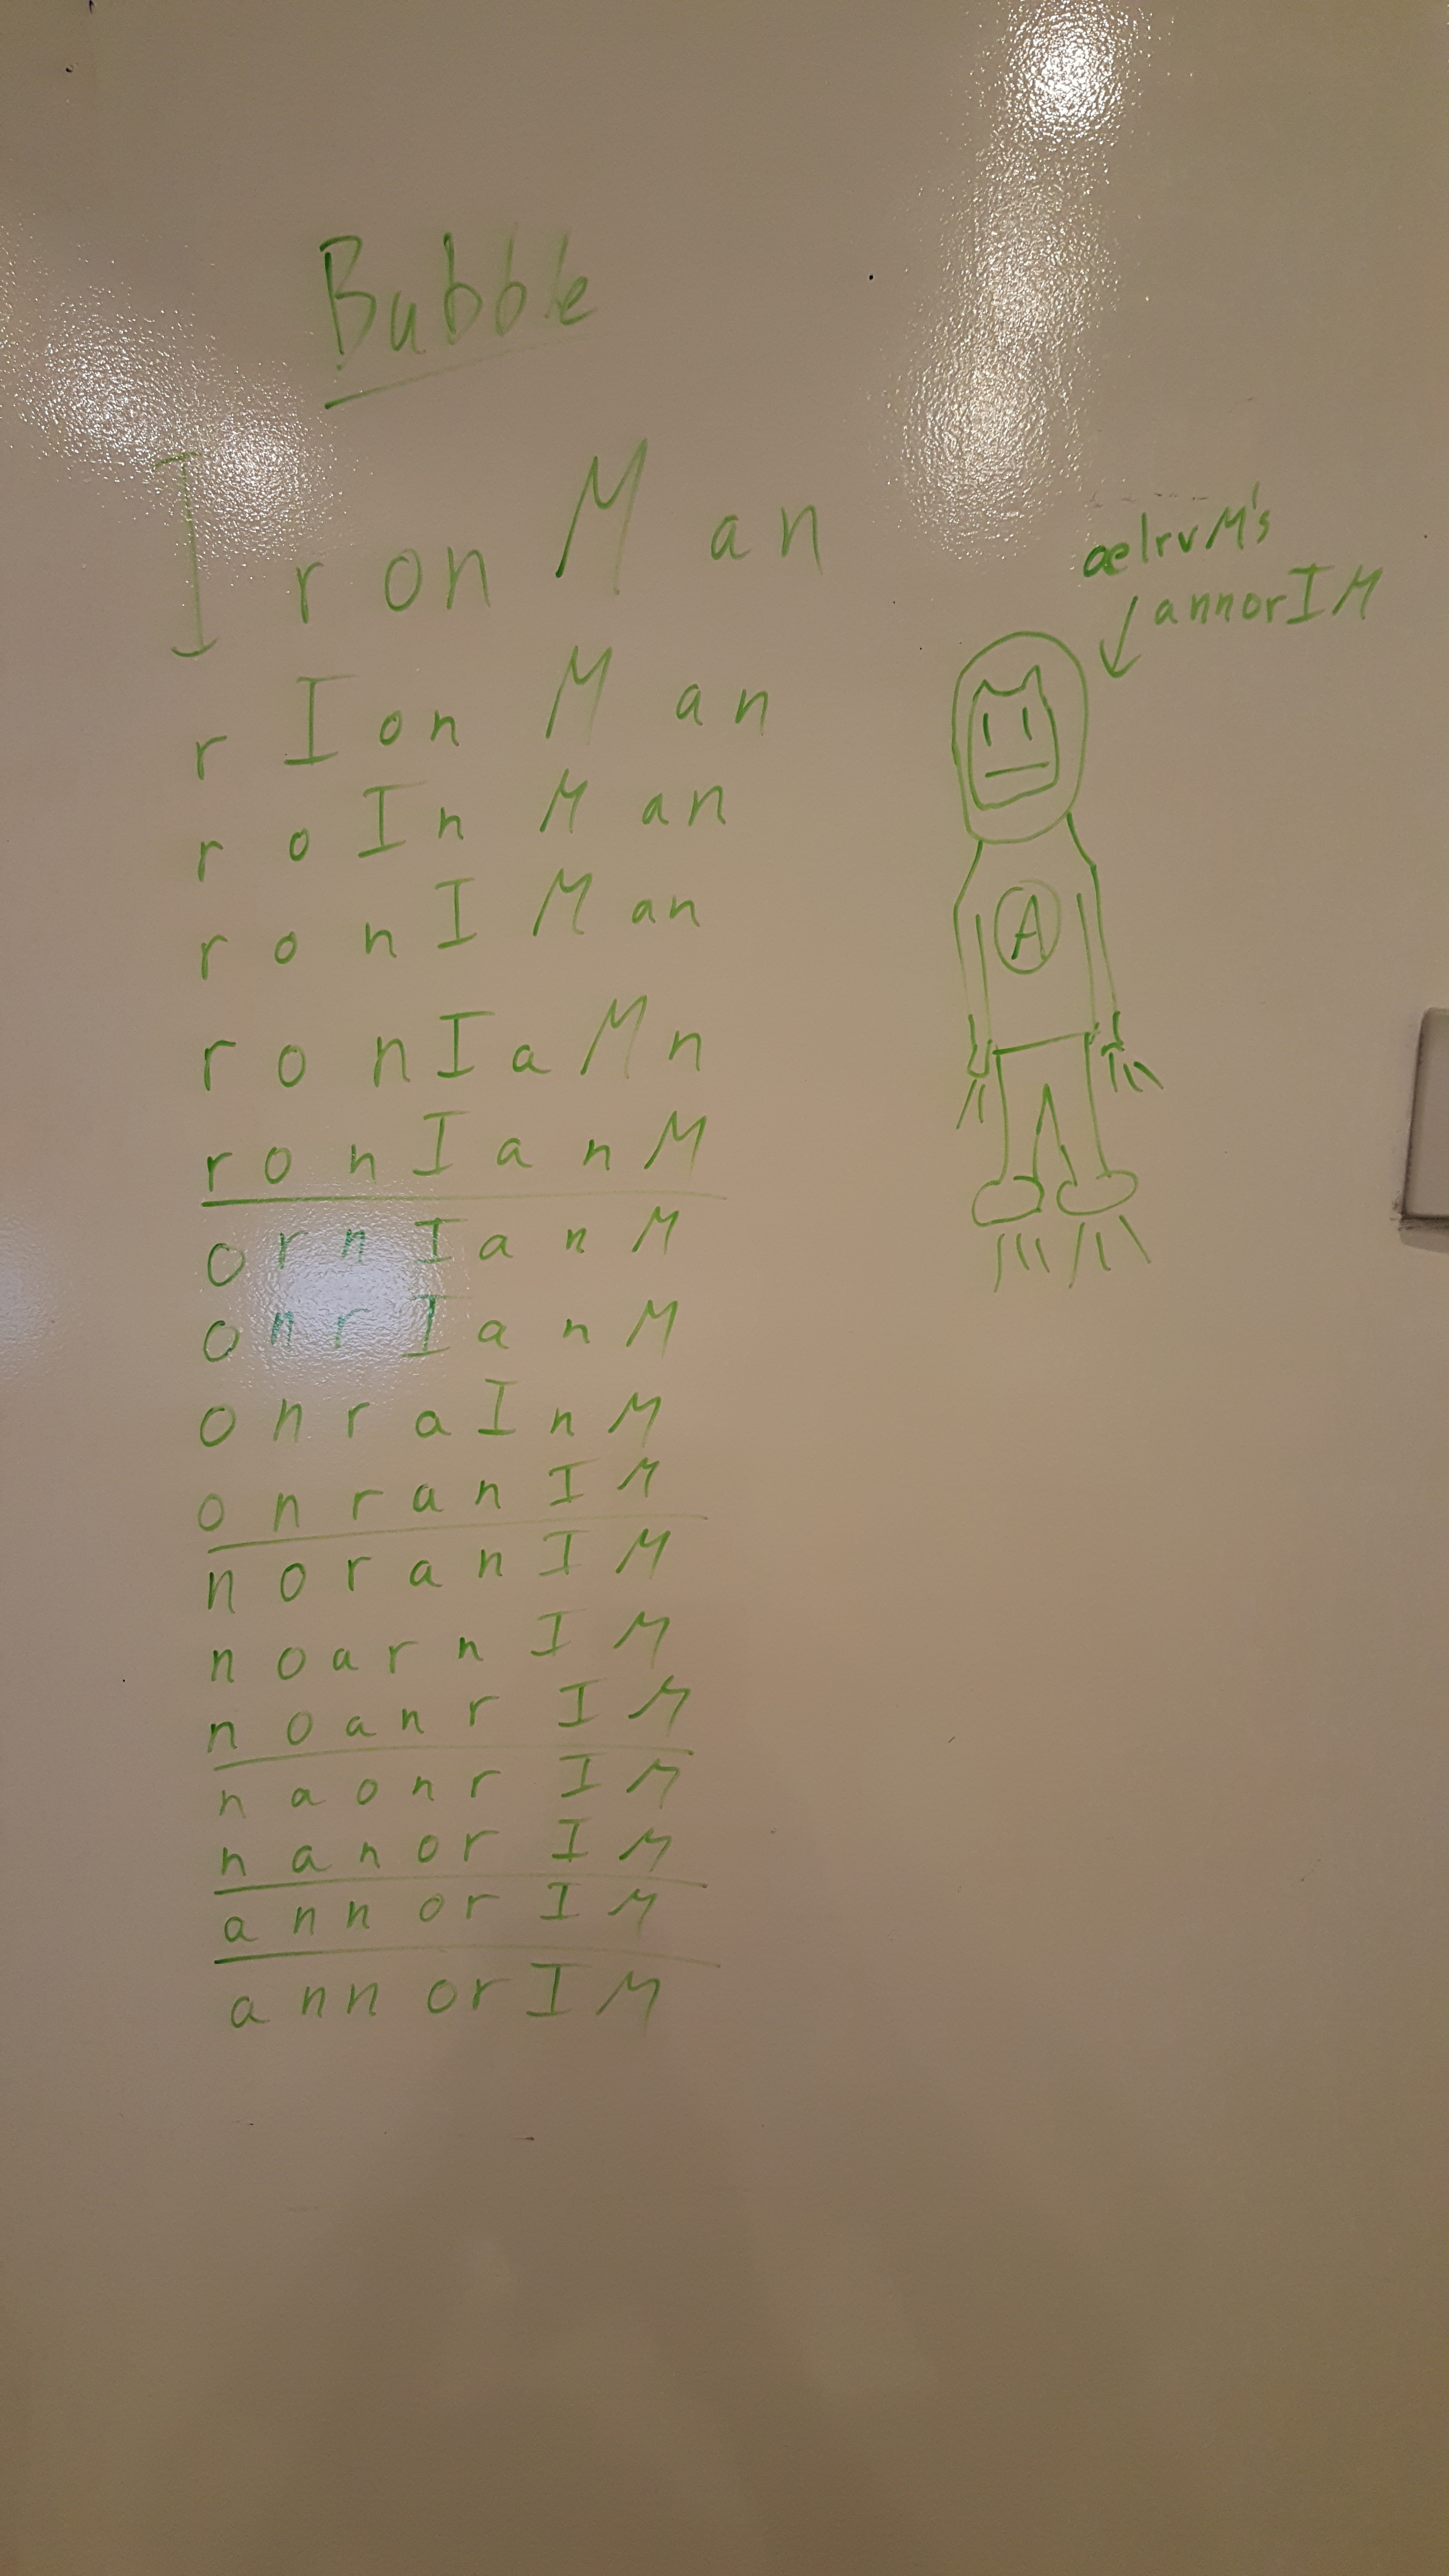 Bubble
I r o n M a n
r I o n M a n
r o I n M a n
r o n I M a n
r o n I a M n
r o n I a n M
o r n I a n M
o n r I a n M
o n r a I n M
o n r a n I M
n o r a n I M
n o a r n I M
n o a n r I M
n a o n r I M
n a n o r I M
a n n o r I M
a n n o r I M
aelrvM's
annorIM
A